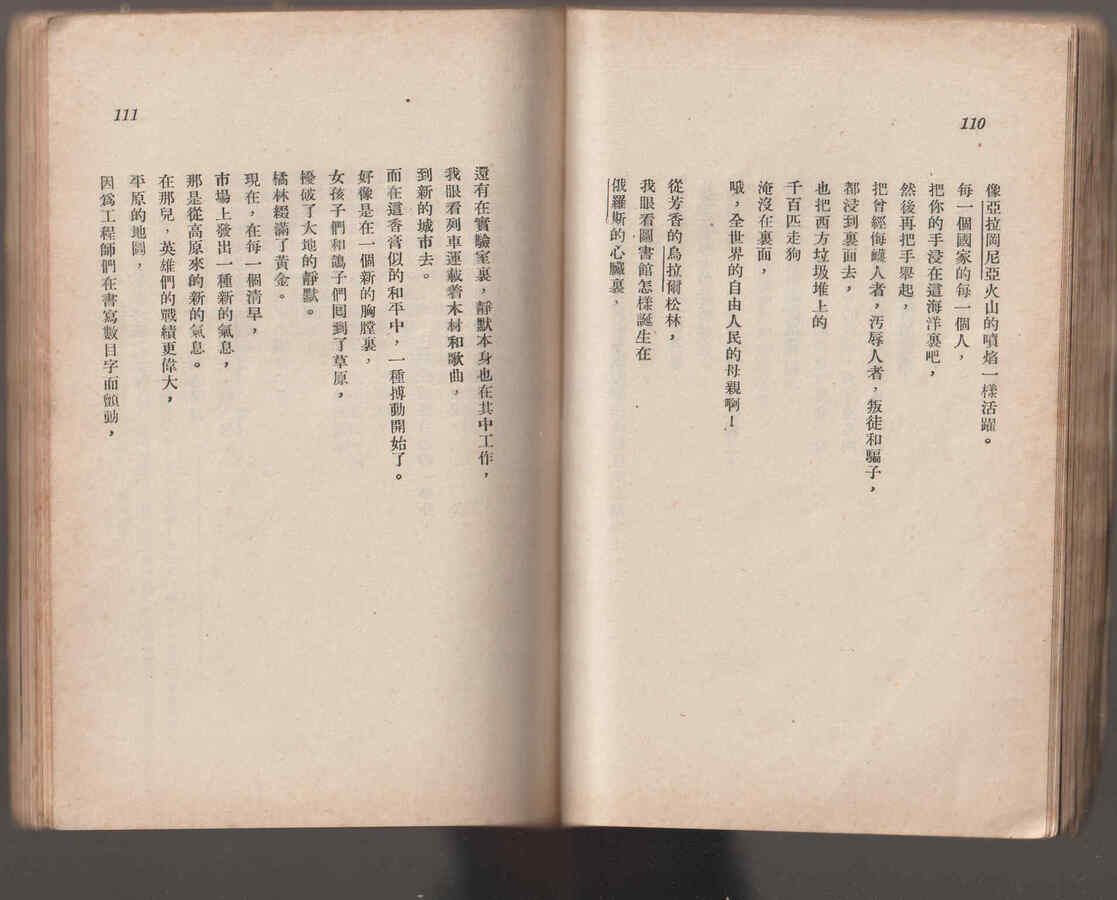 110
像亞拉岡尼亞火山的噴焰一樣活躍。
每一個國家的每一個人，
把你的手浸在這海洋裏吧，
然後再把手舉起，
把曾經侮衊人者，汚辱人者，叛徒和騙子，
都浸到裏面去，
也把西方垃圾堆上的
千百匹走狗
淹沒在裏面，
哦，全世界的自由人民的母親啊！
從芳香的烏拉爾松林，
我眼看圖書館怎樣誕生在
俄羅斯的心臟裏，
111
還有在實驗室裏，靜默本身也在其中工作，
我眼看列車運載着木材和歌曲，
到新的城市去。
而在這香膏似的和平中，一種搏動開始了。
好像是在一個新的胸膛裏，
女孩子們和鴿子們囘到了草原，
擾破了大地的靜默。
橘林綴滿了黃金。
現在，在每一個清早，
市場上發出一種新的氣息，
那是從高原來的新的氣息。
在那兒，英雄們的戰績更偉大，
平原的地圖，
因爲工程師們在書寫數目字而顫動，